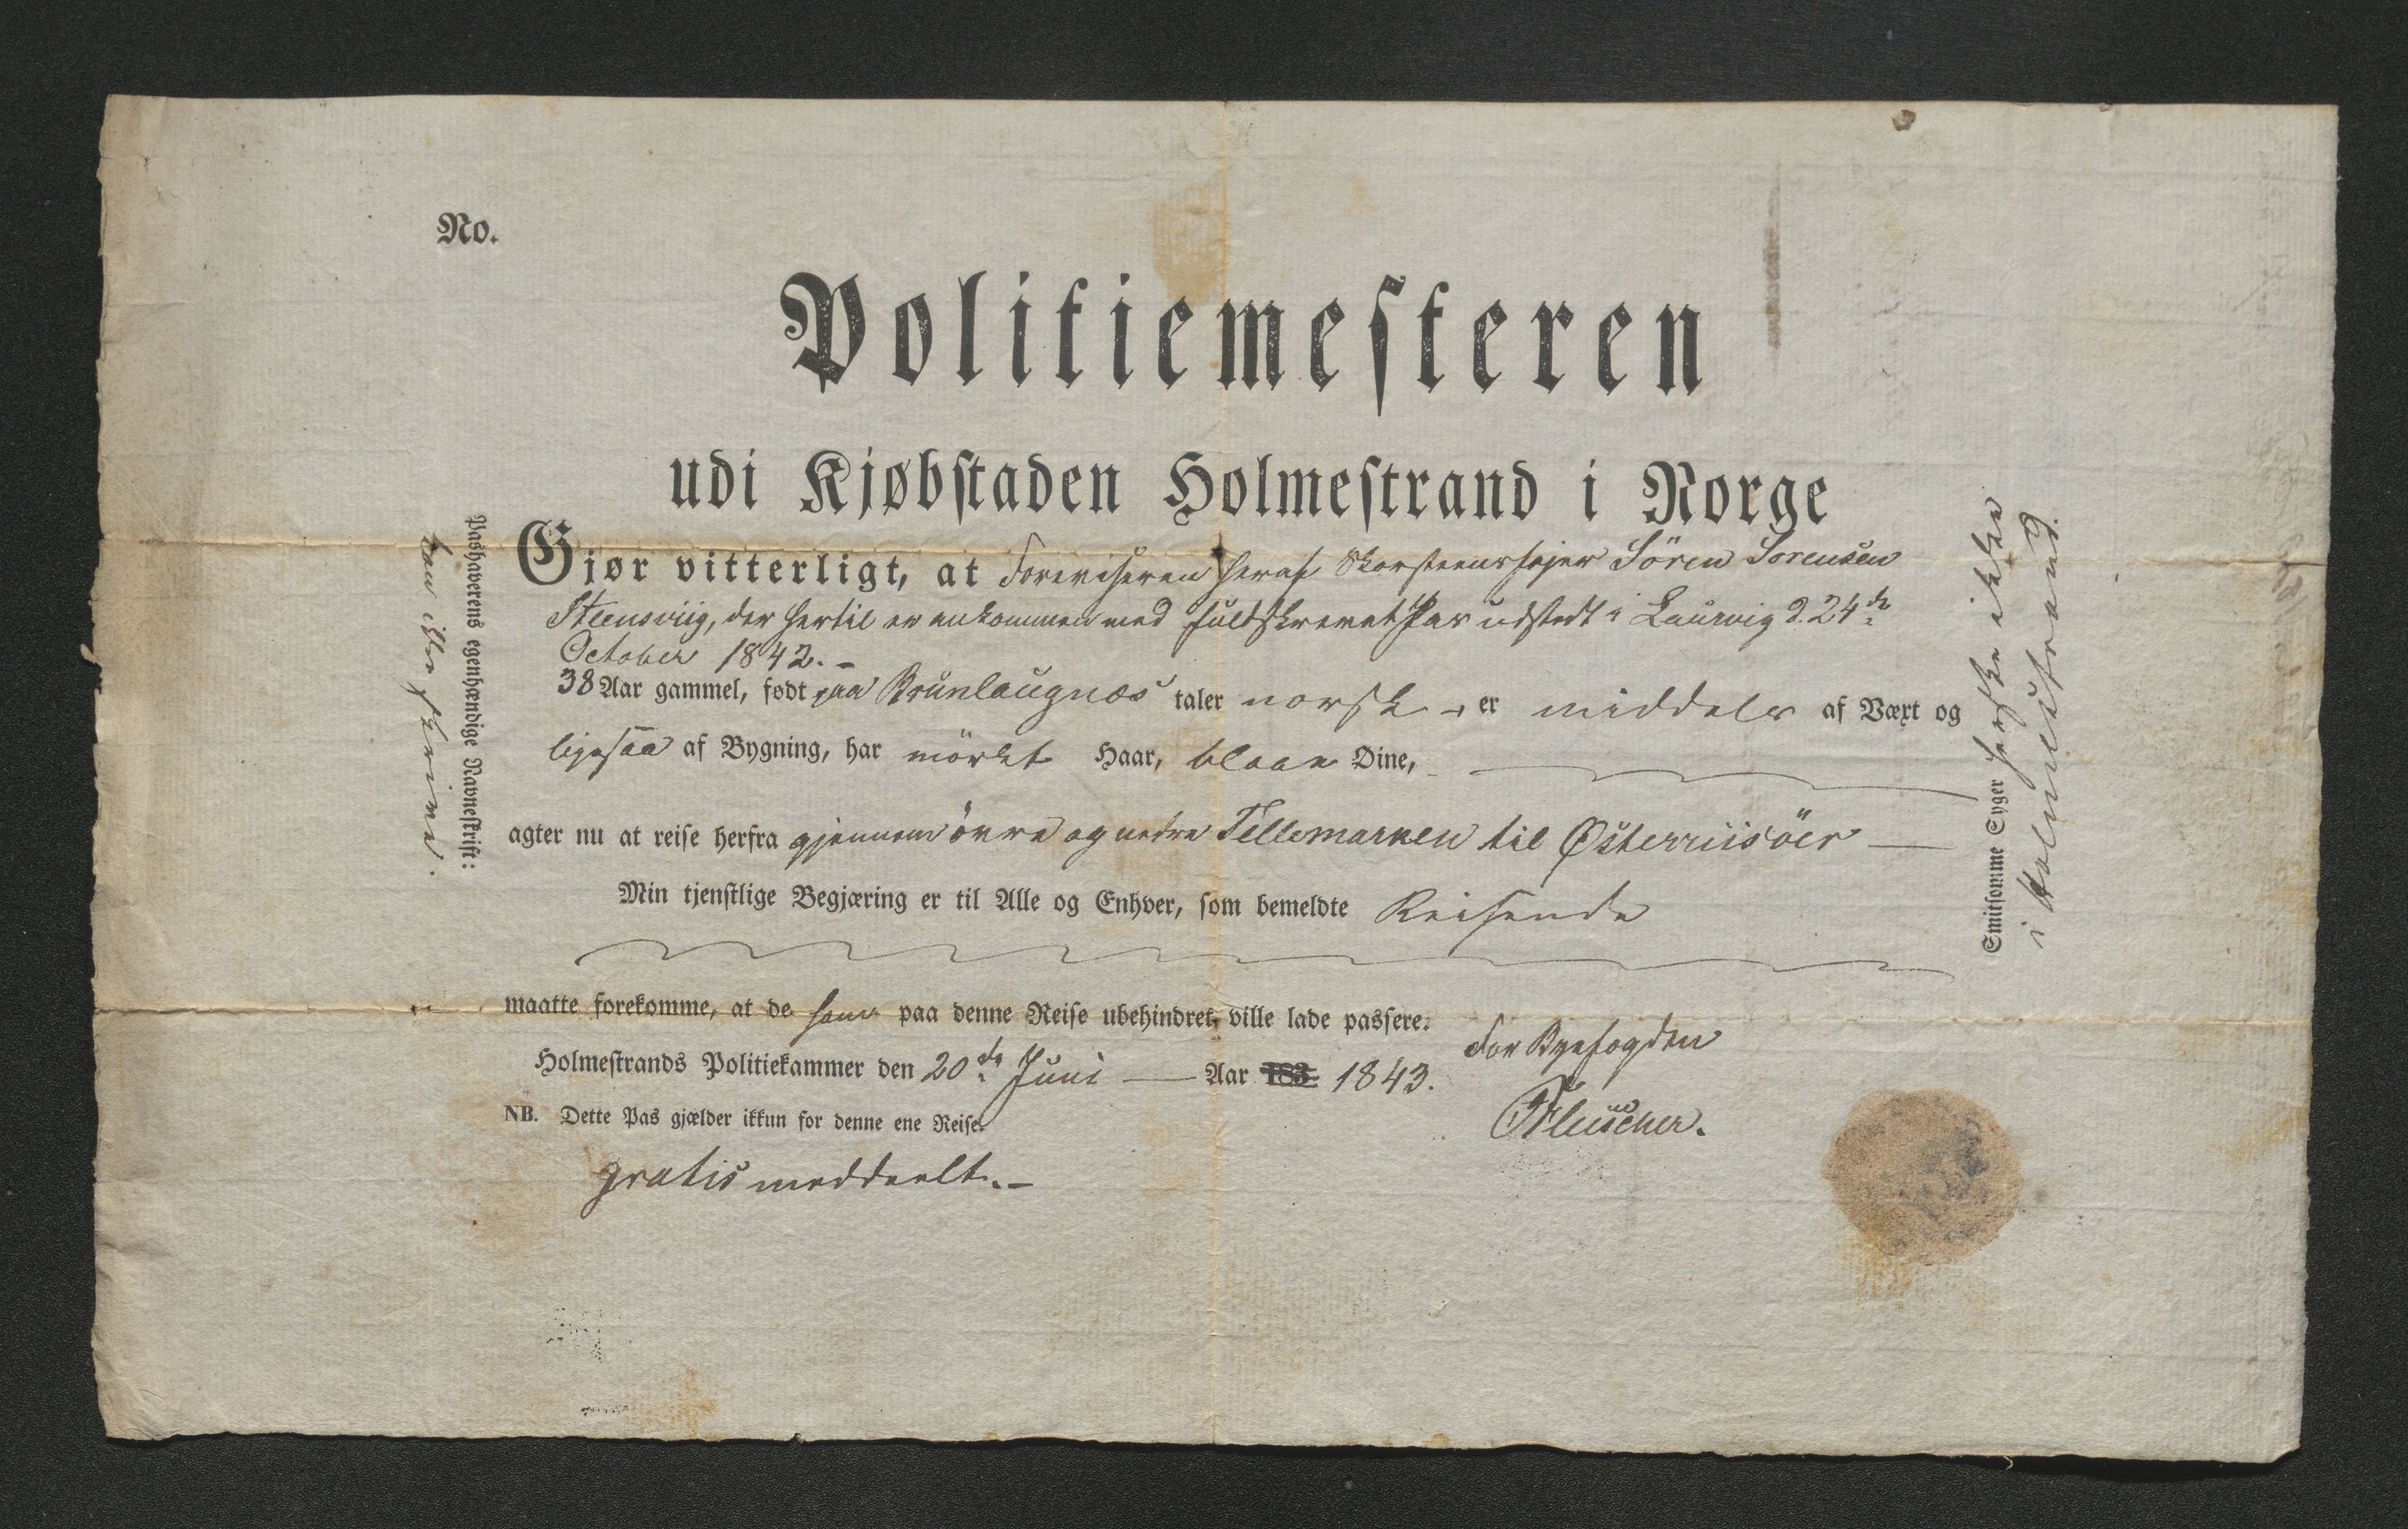 No.
Politiemesteren
udi Kjøbstaden Holmestrand i Norge
Gjør vitterligt, at Foreviseren heraf Skorsteensfejer Sören Sorensen
Steensviig, der hertil er ankommen med fuldskrevet Pas udstedt i Laurvig d. 24de
October 1842.-
38 Aar gammel, født paa Brunlaugnæs taler norsk -, er middels af Væxt og
ligesaa af Bygning, har mörket Haar, blaae Øine,
agter nu at reise herfra gjennem övre og nedre Tellemarken til Østerriisöer
Min tjenstlige Begjæring er til Alle og Enhver, som bemeldte Reisende
maatte forekomme, at de ham paa denne Reise ubehindret ville lade passere.
Holmestrands Politiekammer den 20de Juni Aar 183 1843.
For Byefogden
NB. Dette Pas gjælder ikkun for denne ene Reise.
gratis meddeelt.-
Pashaverens egenhændige Navneskrift:
kan ikke skrive.
Smitsomme Syger herske ikke
i Holmestrand.